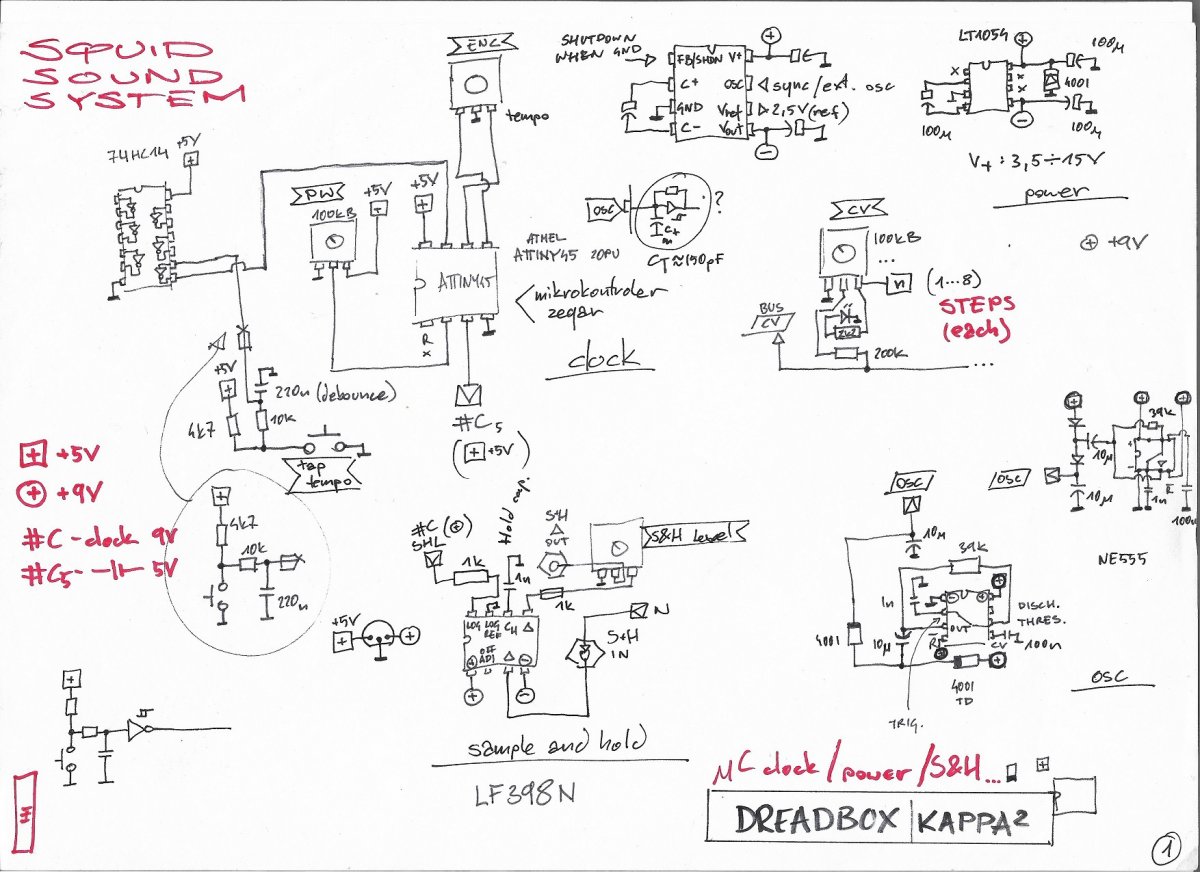 SQUID
SOUND
SYSTEM
74HC14
+5V
ENC
tempo
PW
100kB
+5V
+5V
ATMEL
ATTINY45 20PU
ATTINY45
mikrokontroler
zegar
clock
RX
#C5
(+ +5V)
+5V
4k7
220n (debounce)
10k
tap
tempo
SHUTDOWN
WHEN GND
FB/SHDN V+
C+ OSC
GND Vref
C- Vout
sync/ext. osc
2,5V (ref)
OSC
?
CT≈150pF
LT1054
100µ
4001
100µ
100µ
V+: 3,5÷15V
power
+ +9V
CV
100kB
...
n (1...8)
STEPS
(each)
BUS
CV
2k2
200k
...
+ +5V
+ +9V
#C - clock 9V
#C5 - -||- 5V
4k7
10k
220n
+5V
#C (+)
SHL
Hold cap.
1k
1n
S&H
OUT
S&H Level
1k
LOG
LOG REF
CH
OFF ADJ
N
S&H
IN
sample and hold
LF398N
39k
10µ
10µ
1n
R
100n
OSC
NE555
OSC
10µ
39k
1n
4001
10µ
OUT
R
CV
DISCH.
THRES.
100n
4001
TD
TRIG.
OSC
µC clock/power/S&H...
DREADBOX KAPPA2
1